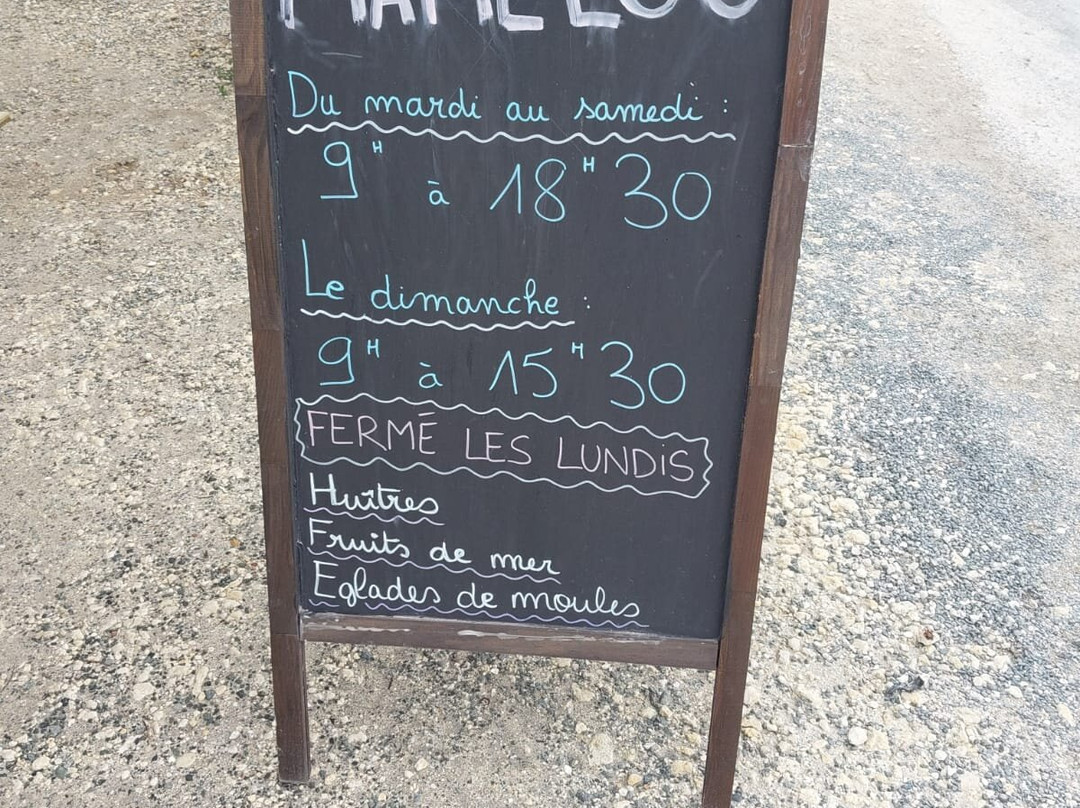 Du mardi au samedi :
9H à 18H30
Le dimanche :
9H à 15H30
FERMÉ LES LUNDIS
Huîtres
Fruits de mer
Eglades de moules